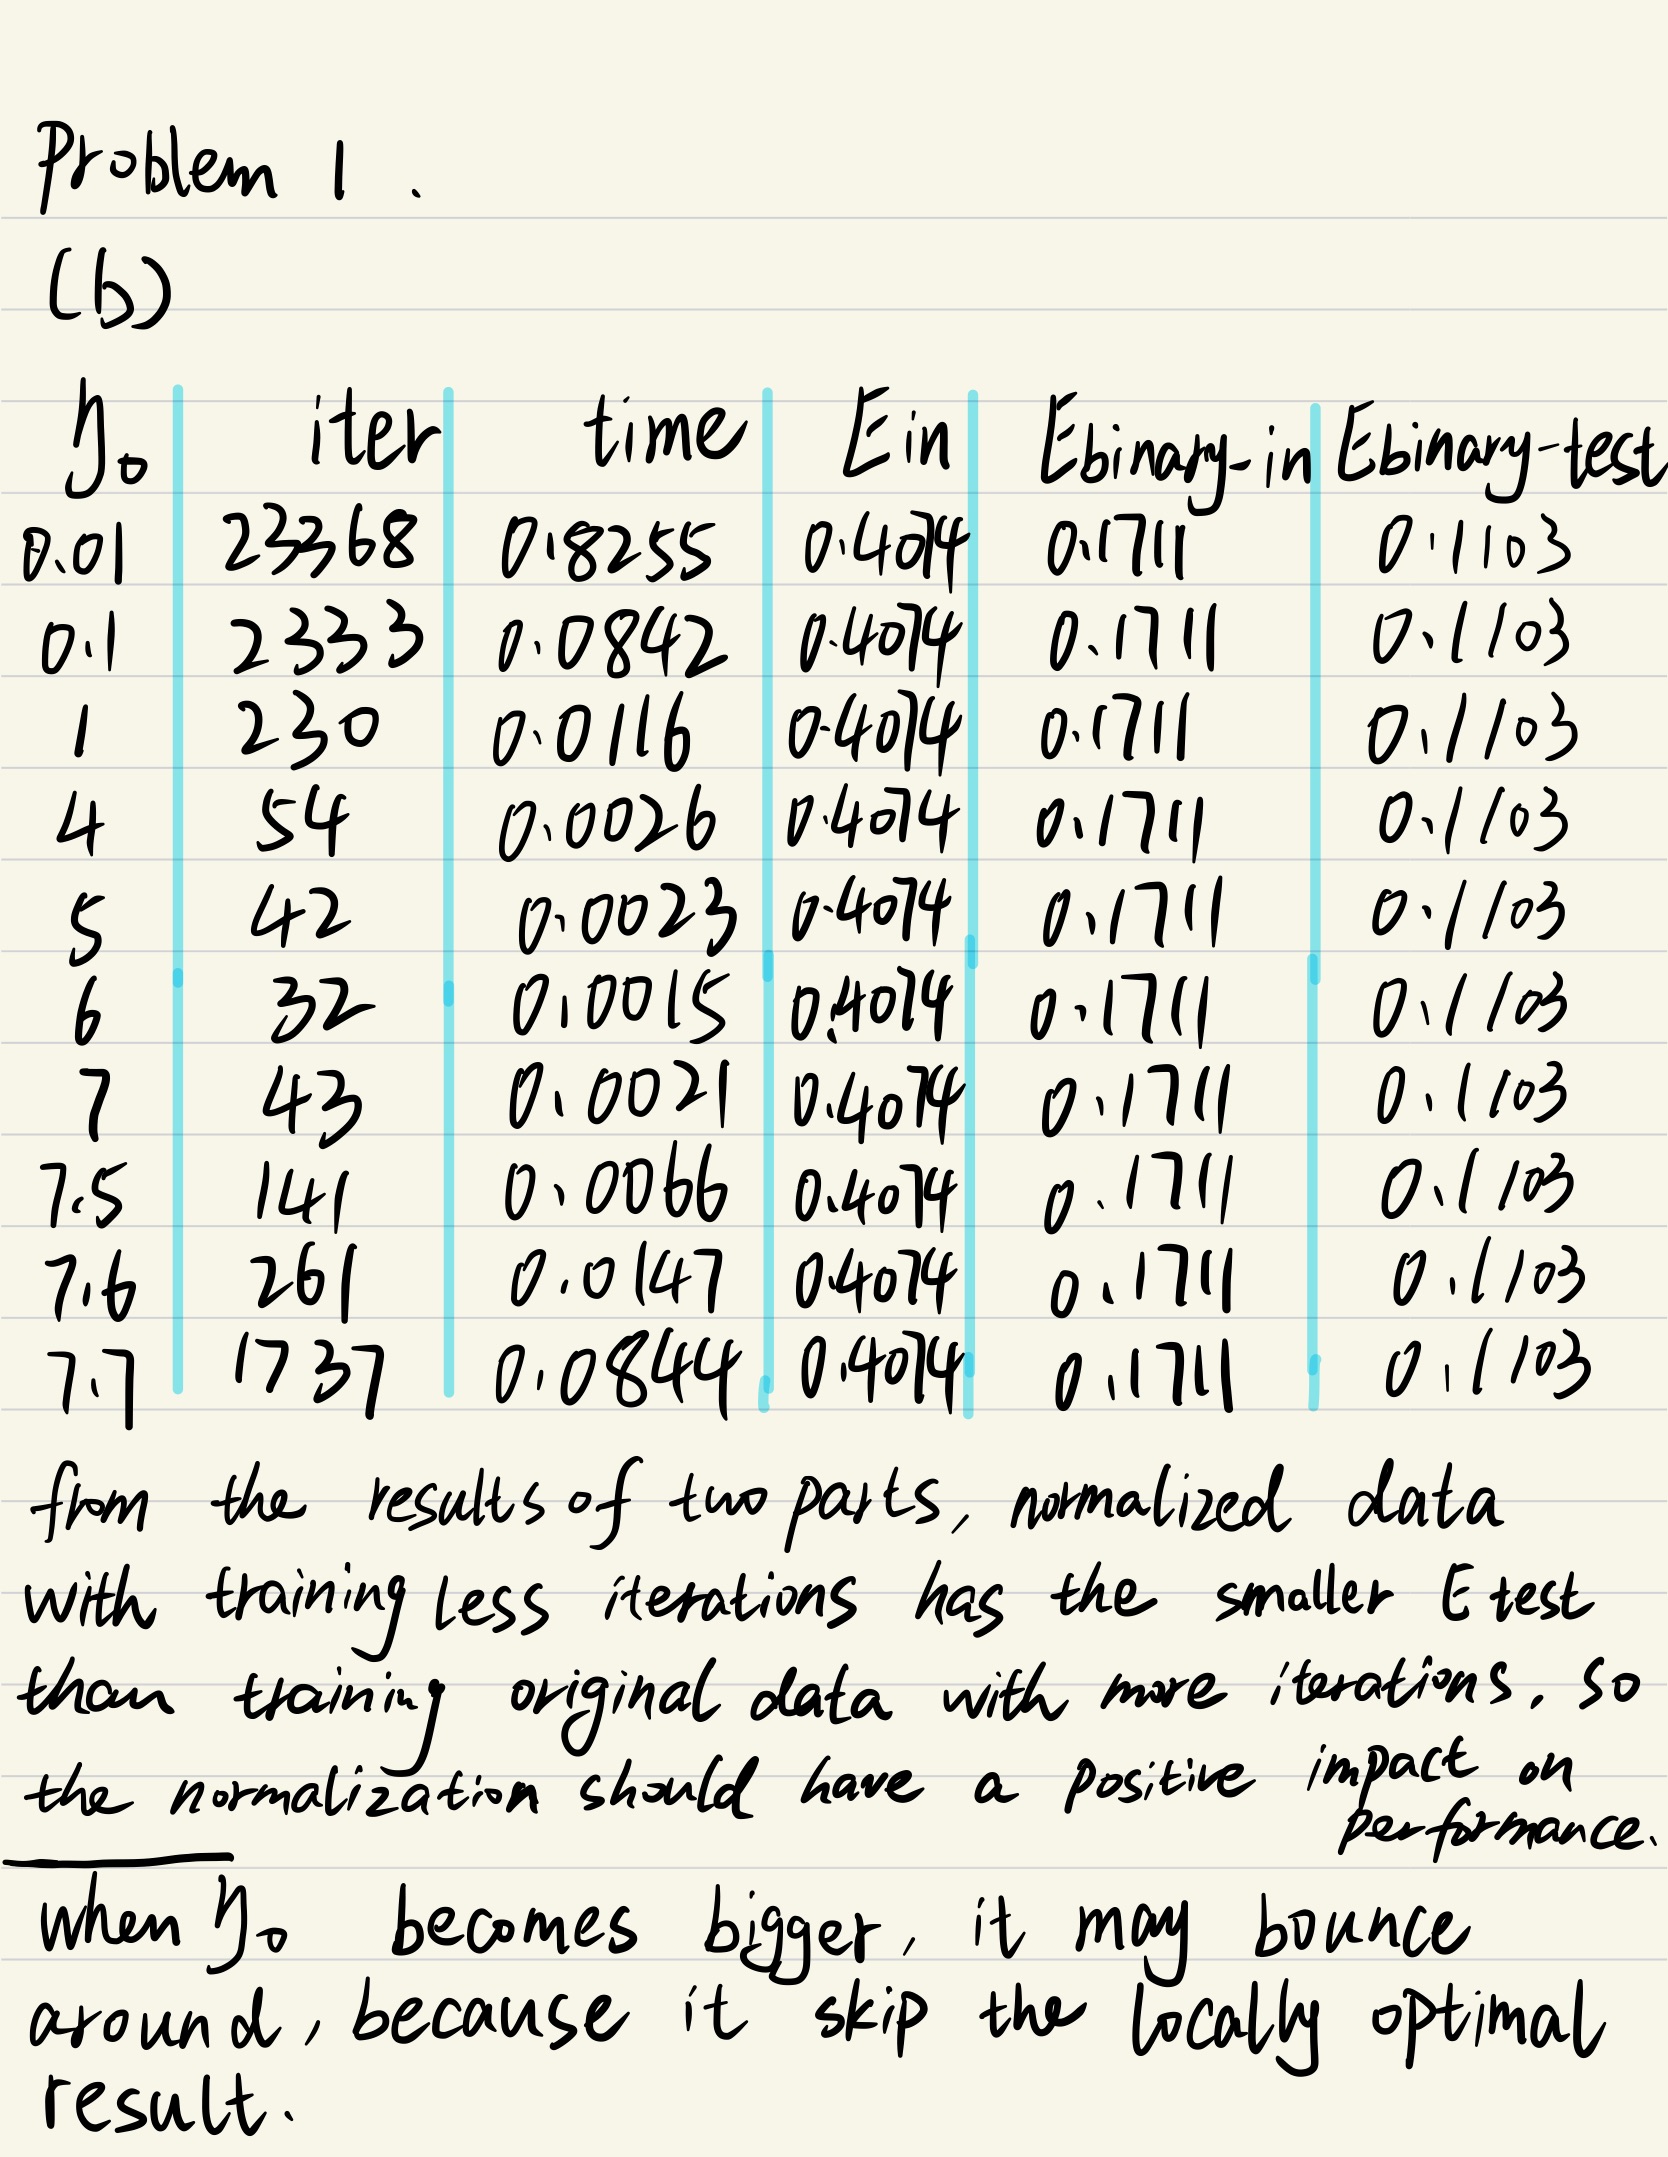 Problem 1.
(b)
η₀ iter time Ein Ebinary-in Ebinary-test
0.01 23368 0.8255 0.4074 0.1711 0.1103
0.1 2333 0.0842 0.4074 0.1711 0.1103
1 230 0.0116 0.4074 0.1711 0.1103
4 54 0.0026 0.4074 0.1711 0.1103
5 42 0.0023 0.4074 0.1711 0.1103
6 32 0.0015 0.4074 0.1711 0.1103
7 43 0.0021 0.4074 0.1711 0.1103
7.5 141 0.0066 0.4074 0.1711 0.1103
7.6 261 0.0147 0.4074 0.1711 0.1103
7.7 1737 0.0844 0.4074 0.1711 0.1103
from the results of two parts, normalized data
with training less iterations has the smaller Etest
than training original data with more iterations. so
the normalization should have a positive impact on
performance.
when η₀ becomes bigger, it may bounce
around, because it skip the locally optimal
result.